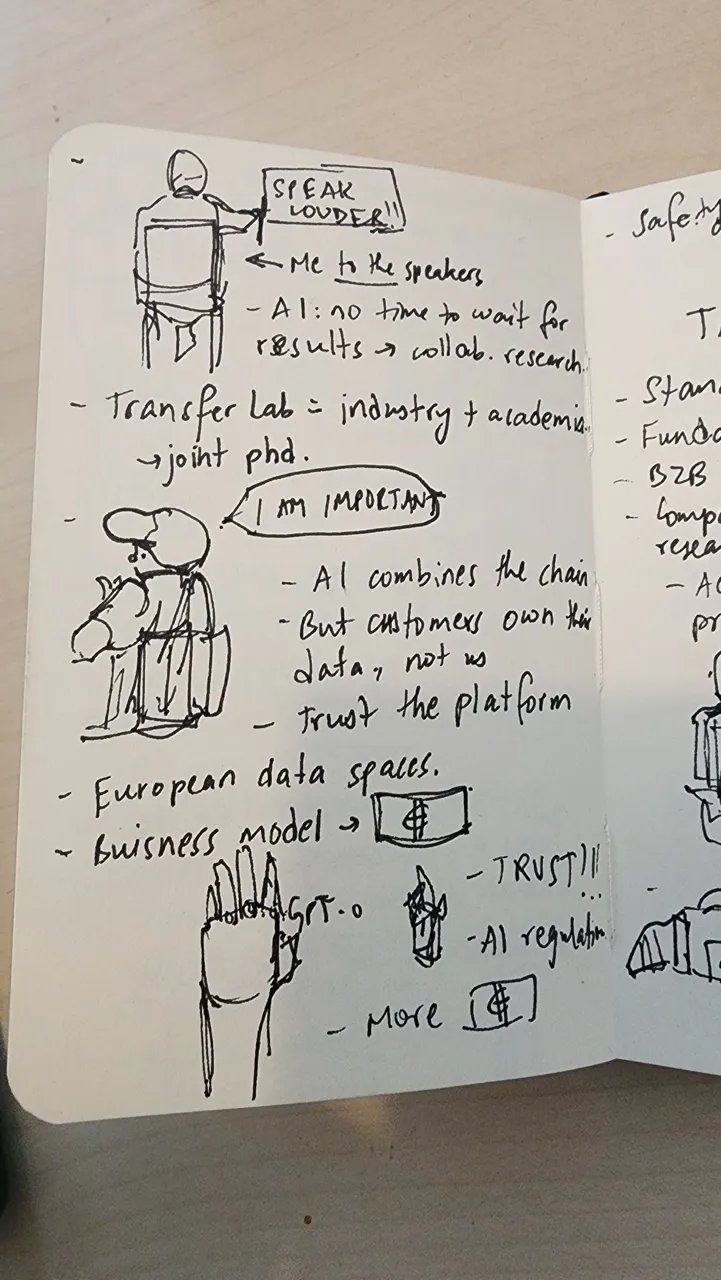 SPEAK
LOUDER!!
← Me to the speakers
- AI: no time to wait for
results → collab. research.
- Transfer Lab = industry + academia.
→ joint phd.
I AM IMPORTANT
- AI combines the chain
- But customers own their
data, not us
- Trust the platform
- European data spaces.
- Buisness model →
- TRUST!!!
GPT-0
- AI regulation
- More
- Safety
- Stan
- Funda
- B2B
- Comp
resea